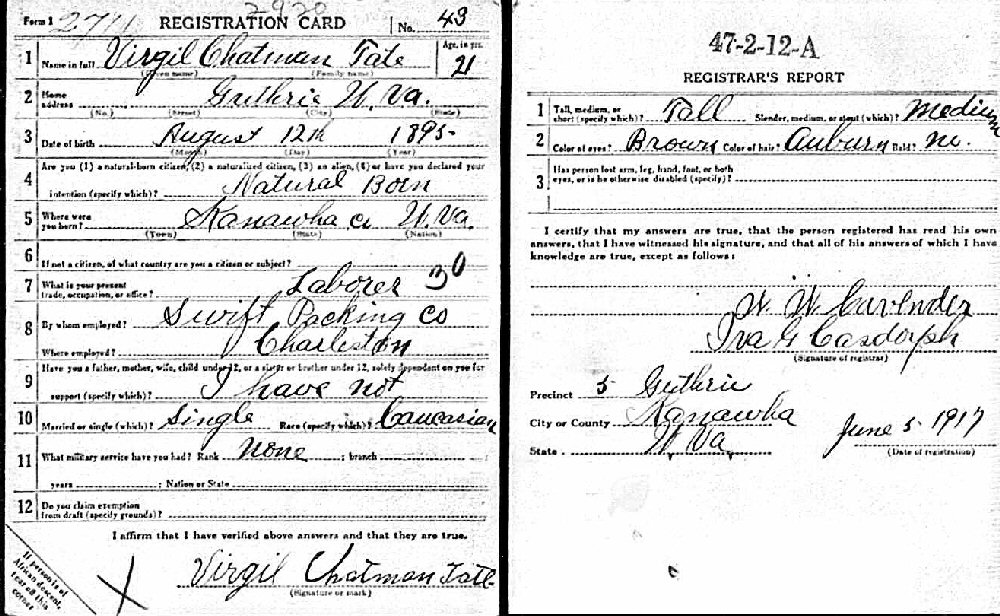 Form 1 2711 2920 REGISTRATION CARD No. 43
1 Name in full Virgil Chatman Tate Age, in yrs. 21
(Given name) (Family name)
2 Home address Guthrie W. Va.
(No.) (Street) (City) (State)
3 Date of birth August 12th 1895
(Month) (Day) (Year)
4 Are you (1) a natural-born citizen, (2) a naturalized citizen, (3) an alien, (4) or have you declared your
intention (specify which)? Natural Born
5 Where were you born? Kanawha Co W. Va.
(Town) (State) (Nation)
6 If not a citizen, of what country are you a citizen or subject?
7 What is your present trade, occupation, or office? Laborer 30
8 By whom employed? Swift Packing Co
Where employed? Charleston
9 Have you a father, mother, wife, child under 12, or a sister or brother under 12, solely dependent on you for
support (specify which)? I have not
10 Married or single (which)? Single Race (specify which)? Caucasian
11 What military service have you had? Rank none ; branch
years ; Nation or State
12 Do you claim exemption from draft (specify grounds)?
I affirm that I have verified above answers and that they are true.
Virgil Chatman Tate
(Signature or mark)
If person is of African descent, tear off this corner
X
47-2-12-A
REGISTRAR'S REPORT
1 Tall, medium, or short (specify which)? Tall Slender, medium, or stout (which)? Medium
2 Color of eyes? Brown Color of hair? Auburn Bald? No.
3 Has person lost arm, leg, hand, foot, or both
eyes, or is he otherwise disabled (specify)?
I certify that my answers are true, that the person registered has read his own
answers, that I have witnessed his signature, and that all of his answers of which I have
knowledge are true, except as follows:
W. W. Cavender
Ira G Casdorph
(Signature of registrar)
Precinct 5 Guthrie
City or County Kanawha
State W Va
June 5 1917
(Date of registration)